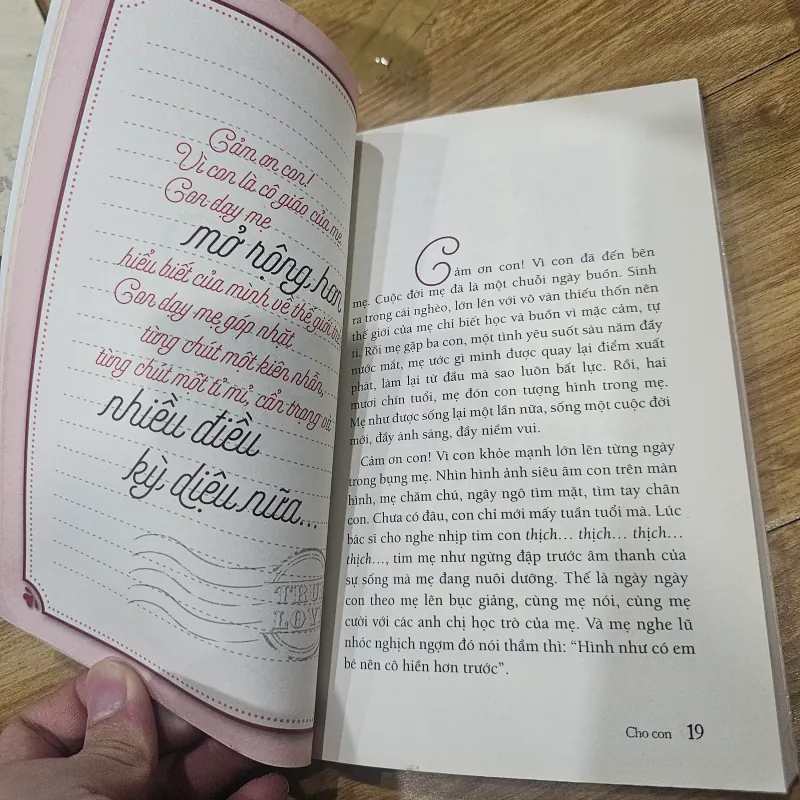 Cảm ơn con!
Vì con là cô giáo của mẹ.
Con dạy mẹ
mở rộng hơn
hiểu biết của mình về thế giới
Con dạy mẹ góp nhặt
từng chút một kiên nhẫn,
từng chút một tỉ mỉ, cẩn trọng và
nhiều điều
kỳ diệu nữa...
TRUE
LOVE
Cảm ơn con! Vì con đã đến bên
mẹ. Cuộc đời mẹ đã là một chuỗi ngày buồn. Sinh
ra trong cái nghèo, lớn lên với vô vàn thiếu thốn nên
thế giới của mẹ chỉ biết học và buồn vì mặc cảm, tự
ti. Rồi mẹ gặp ba con, một tình yêu suốt sáu năm đầy
nước mắt, mẹ ước gì mình được quay lại điểm xuất
phát, làm lại từ đầu mà sao luôn bất lực. Rồi, hai
mươi chín tuổi, mẹ đón con tượng hình trong mẹ.
Mẹ như được sống lại một lần nữa, sống một cuộc đời
mới, đầy ánh sáng, đầy niềm vui.
Cảm ơn con! Vì con khỏe mạnh lớn lên từng ngày
trong bụng mẹ. Nhìn hình ảnh siêu âm con trên màn
hình, mẹ chăm chú, ngây ngô tìm mặt, tìm tay chân
con. Chưa có đâu, con chỉ mới mấy tuần tuổi mà. Lúc
bác sĩ cho nghe nhịp tim con thịch... thịch... thịch...
thịch..., tim mẹ như ngừng đập trước âm thanh của
sự sống mà mẹ đang nuôi dưỡng. Thế là ngày ngày
con theo mẹ lên bục giảng, cùng mẹ nói, cùng mẹ
cười với các anh chị học trò của mẹ. Và mẹ nghe lũ
nhóc nghịch ngợm đó nói thầm thì: “Hình như có em
bé nên cô hiền hơn trước”.
Cho con 19